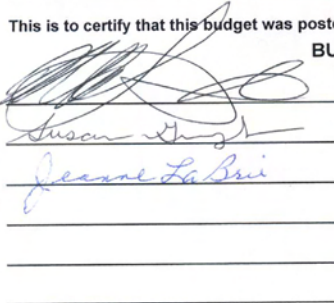 This is to certify that this budget was poste
BU
Susan
Jeanne LaBrie